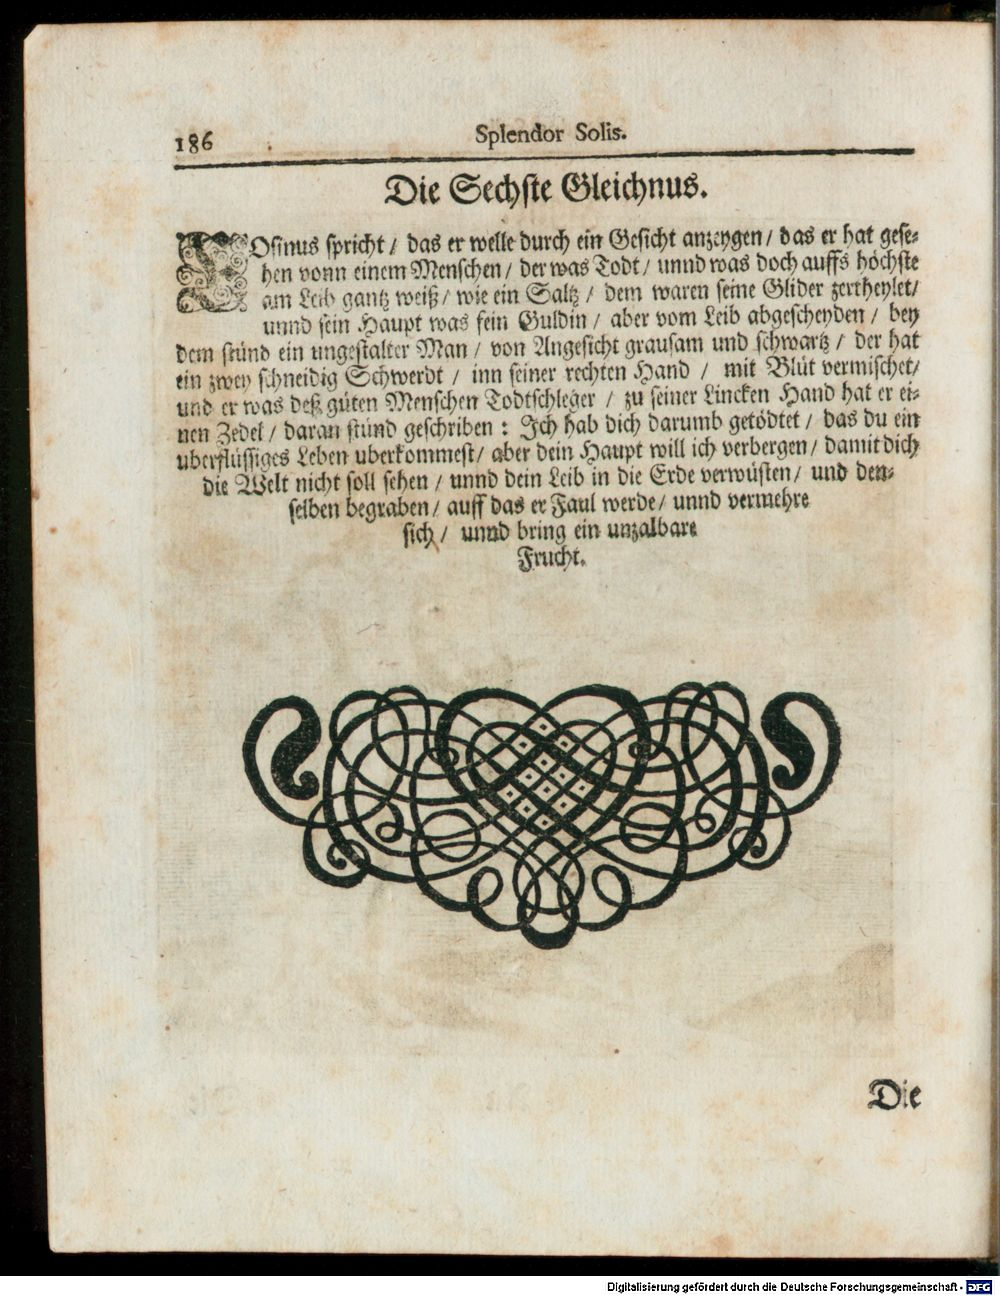 186
Splendor Solis.
Die Sechste Gleichnus.
ROsinus spricht / das er welle durch ein Gesicht anzeygen / das er hat gese-
hen vonn einem Menschen / der was Todt / unnd was doch auffs höchste
am Leib gantz weiß / wie ein Saltz / dem waren seine Glider zertheylet /
unnd sein Haupt was fein Guldin / aber vom Leib abgescheyden / bey
dem stůnd ein ungestalter Man / von Angesicht grausam und schwartz / der hat
ein zwey schneidig Schwerdt / inn seiner rechten Hand / mit Blůt vermischet /
und er was deß gůten Menschen Todtschleger / zu seiner Lincken Hand hat er ei-
nen Zedel / daran stůnd geschriben : Ich hab dich darumb getödtet / das du ein
uberflüssiges Leben uberkommest / aber dein Haupt will ich verbergen / damit dich
die Welt nicht soll sehen / unnd dein Leib in die Erde verwüsten / und den-
selben begraben / auff das er Faul werde / unnd vermehre
sich / unnd bring ein unzalbare
Frucht.
Die
Digitalisierung gefördert durch die Deutsche Forschungsgemeinschaft - DFG